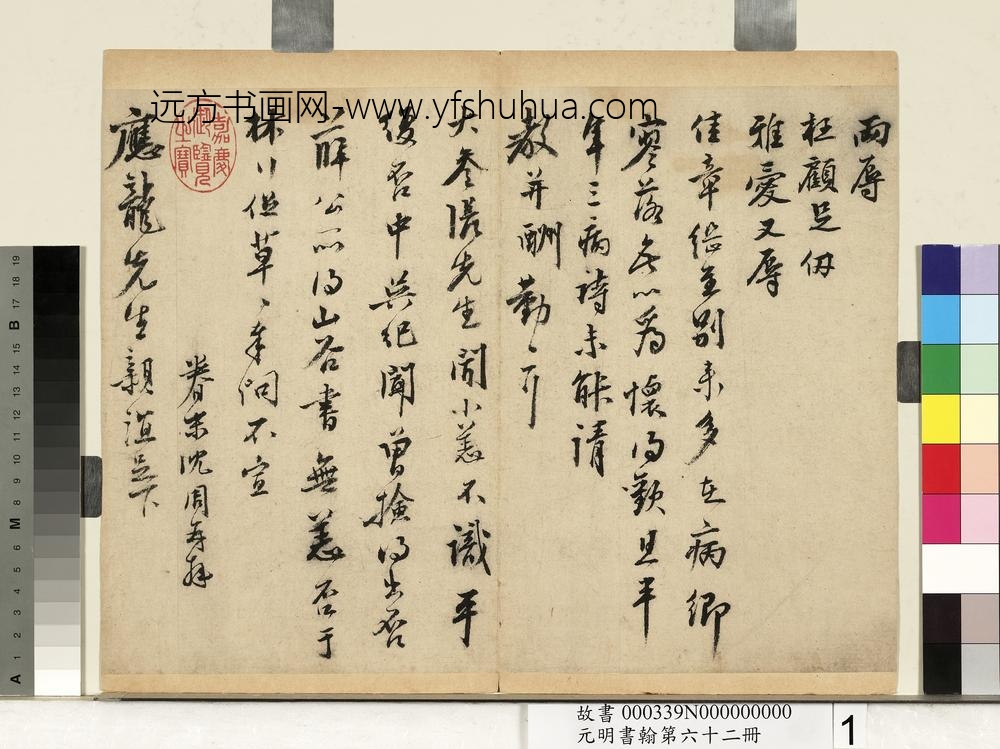 远方书画网-www.yfshuhua.com
兩辱
枉顧足仞
雅愛又辱
佳章繼至別來多在病鄉
寥落無以為懷得歎且半
年三病詩未能請
教并酬勤々耳
大參隱先生聞小恙不識平
復否中吳紀聞曾撿得出否
前解公所得山谷書無恙否于
但草々奉問不宣
眷末沈周再拜
應龍先生親誼足下
嘉慶御覽之寶
故書 000339N000000000
元明書翰第六十二冊
1
A 1 2 3 4 5 6 M 8 9 10 11 12 13 14 15 B 17 18 19